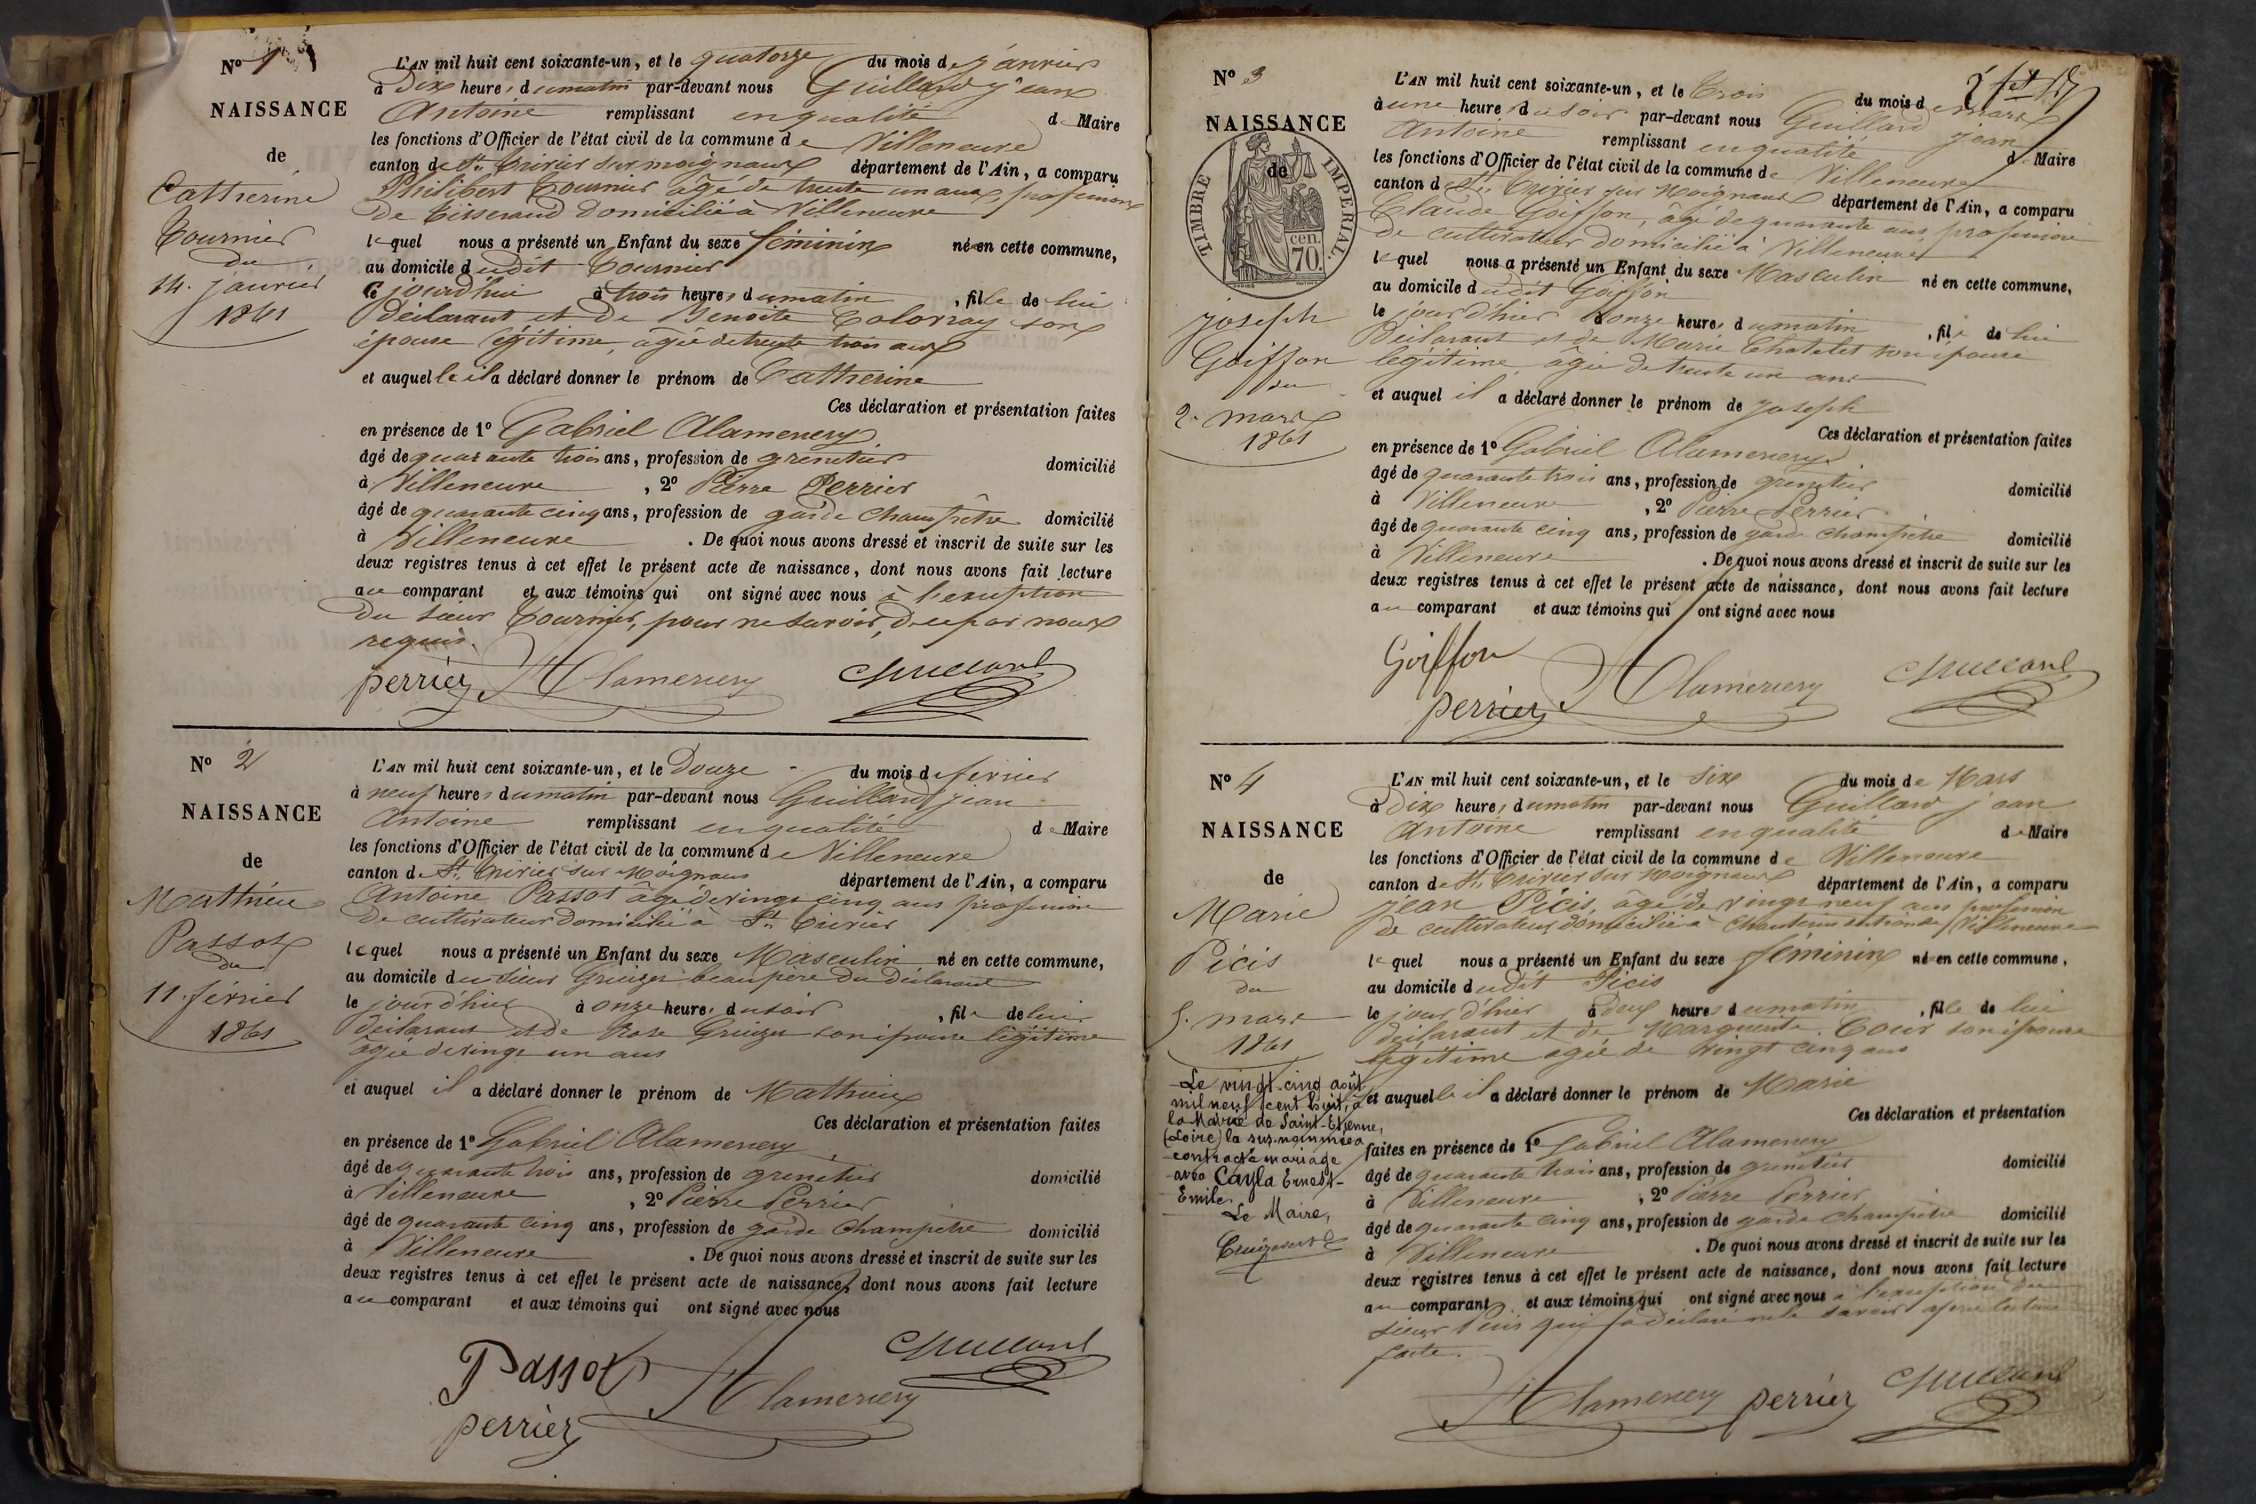 N° 1
NAISSANCE
de
Catherine
Tournier
du
14. janvier
1861
L'AN mil huit cent soixante-un, et le quatorze du mois de janvier
à Dix heures du matin par-devant nous Guillard jean
Antoine remplissant en qualité de Maire
les fonctions d'Officier de l'état civil de la commune de Villeneuve
canton de St. Trivier sur moignans département de l'Ain, a comparu
Philibert Tournier âgé de trente un ans, profession
de Tisserand domicilié à Villeneuve
lequel nous a présenté un Enfant du sexe féminin né en cette commune,
au domicile dudit Tournier
Ce jourd'hui à trois heures du matin, fille de lui
Déclarant et de Benoite son
épouse légitime, âgée de trente trois ans
et auquelle il a déclaré donner le prénom de Catherine
Ces déclaration et présentation faites
en présence de 1° Gabriel Alamercery
âgé de quarante trois ans, profession de grenetier domicilié
à Villeneuve, 2° Pierre Perrier
âgé de quarante cinq ans, profession de garde champêtre domicilié
à Villeneuve. De quoi nous avons dressé et inscrit de suite sur les
deux registres tenus à cet effet le présent acte de naissance, dont nous avons fait lecture
au comparant et aux témoins qui ont signé avec nous à l'exception
du sieur Tournier, pour ne savoir, de ce par nous
requis.
perrier Alamercery Guillard
N° 2
NAISSANCE
de
Mathieu
Passot
du
11. février
1861
L'AN mil huit cent soixante-un, et le Douze du mois de février
à neuf heures du matin par-devant nous Guillard jean
Antoine remplissant en qualité de Maire
les fonctions d'Officier de l'état civil de la commune de Villeneuve
canton de St. Trivier sur Moignans département de l'Ain, a comparu
Antoine Passot âgé de vingt cinq ans profession
de cultivateur domicilié à St Trivier
lequel nous a présenté un Enfant du sexe Masculin né en cette commune,
au domicile du sieur beaupère du Déclarant
le jour d'hier à onze heures du soir, fils de lui
déclarant et de Rose son épouse légitime
âgée de vingt un ans
et auquel il a déclaré donner le prénom de Mathieu
Ces déclaration et présentation faites
en présence de 1° Gabriel Alamercery
âgé de quarante trois ans, profession de grenetier domicilié
à Villeneuve, 2° Pierre Perrier
âgé de quarante cinq ans, profession de garde champêtre domicilié
à Villeneuve. De quoi nous avons dressé et inscrit de suite sur les
deux registres tenus à cet effet le présent acte de naissance, dont nous avons fait lecture
au comparant et aux témoins qui ont signé avec nous
Passot Alamercery Guillard
perrier
N° 3
NAISSANCE
de
TIMBRE IMPERIAL.
cen.
70.
joseph
Goiffon
du
2. mars
1861
L'AN mil huit cent soixante-un, et le Trois du mois de mars
à une heure du soir par-devant nous Guillard jean
Antoine remplissant en qualité de Maire
les fonctions d'Officier de l'état civil de la commune de Villeneuve
canton de St. Trivier sur Moignans département de l'Ain, a comparu
Claude Goiffon, âgé de quarante ans profession
de cultivateur domicilié à Villeneuve
lequel nous a présenté un Enfant du sexe Masculin né en cette commune,
au domicile dudit Goiffon
le jour d'hier à onze heures du matin, fils de lui
Déclarant et de Marie Chatelet son épouse
légitime, âgée de trente un ans
et auquel il a déclaré donner le prénom de joseph
Ces déclaration et présentation faites
en présence de 1° Gabriel Alamercery
âgé de quarante trois ans, profession de grenetier domicilié
à Villeneuve, 2° Pierre Perrier
âgé de quarante cinq ans, profession de garde champêtre domicilié
à Villeneuve. De quoi nous avons dressé et inscrit de suite sur les
deux registres tenus à cet effet le présent acte de naissance, dont nous avons fait lecture
au comparant et aux témoins qui ont signé avec nous
Goiffon
perrier Alamercery Guillard
N° 4
NAISSANCE
de
Marie
Pécis
du
5. mars
1861
Le vingt-cinq août
mil neuf cent huit, à
la Mairie de Saint-Etienne,
(Loire) la sus-nommée a
contracté mariage
avec Cayla Ernest-
Emile.
Le Maire,
L'AN mil huit cent soixante-un, et le Six du mois de Mars
à Dix heures du matin par-devant nous Guillard jean
Antoine remplissant en qualité de Maire
les fonctions d'Officier de l'état civil de la commune de Villeneuve
canton de St. Trivier sur Moignans département de l'Ain, a comparu
jean Pécis, âgé de vingt neuf ans profession
de cultivateur, domicilié à section de Villeneuve
lequel nous a présenté un Enfant du sexe féminin né en cette commune,
au domicile dudit Pécis
le jour d'hier à deux heures du matin, fille de lui
déclarant et de Marguerite son épouse
légitime âgée de vingt cinq ans
et auquelle il a déclaré donner le prénom de Marie
Ces déclaration et présentation
faites en présence de 1° Gabriel Alamercery
âgé de quarante trois ans, profession de grenetier domicilié
à Villeneuve, 2° Pierre Perrier
âgé de quarante cinq ans, profession de garde champêtre domicilié
à Villeneuve. De quoi nous avons dressé et inscrit de suite sur les
deux registres tenus à cet effet le présent acte de naissance, dont nous avons fait lecture
au comparant et aux témoins qui ont signé avec nous à l'exception du
sieur Pécis qui a déclaré ne le savoir après lecture
faite.
Alamercery perrier Guillard